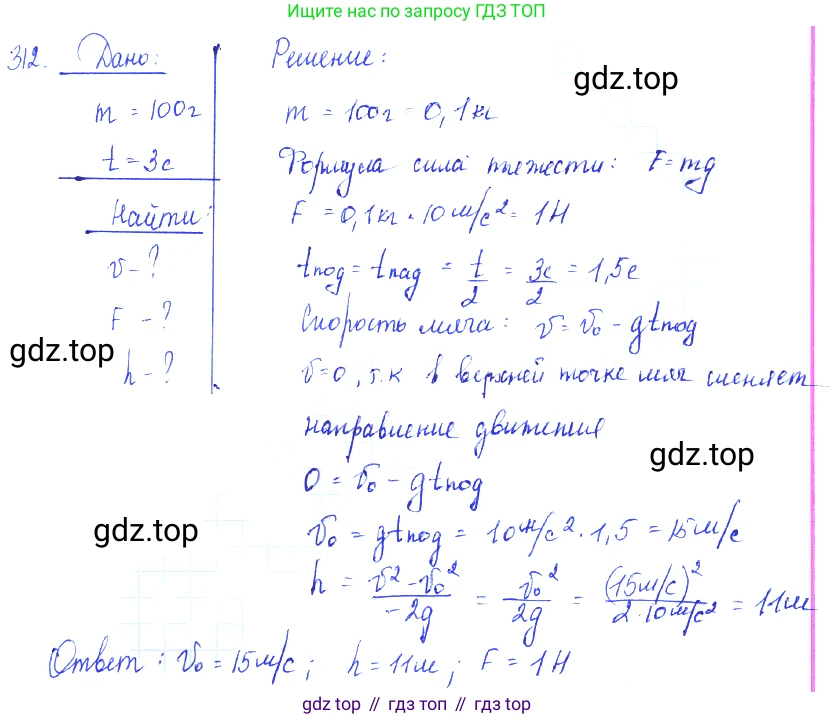 Ищите нас по запросу ГДЗ ТОП
312. Дано:
m = 100г
t = 3с
Найти:
v - ?
F - ?
h - ?
Решение:
gdz.top
m = 100г = 0,1кг
Формула сила тяжести: F = mg
F = 0,1кг · 10м/с² = 1Н
tпод = tпад = t/2 = 3с/2 = 1,5с
Скорость мяча: v = v₀ - gtпод
gdz.top
v = 0, т.к в верхней точке мяч сменяет
направление движения
gdz.top
0 = v₀ - gtпод
gdz.top
v₀ = gtпод = 10м/с² · 1,5 = 15м/с
h = (v² - v₀²)/(-2g) = v₀²/2g = (15м/с)²/(2·10м/с²) = 11м
Ответ: v₀ = 15м/с; h = 11м; F = 1Н
gdz top // гдз топ // gdz top